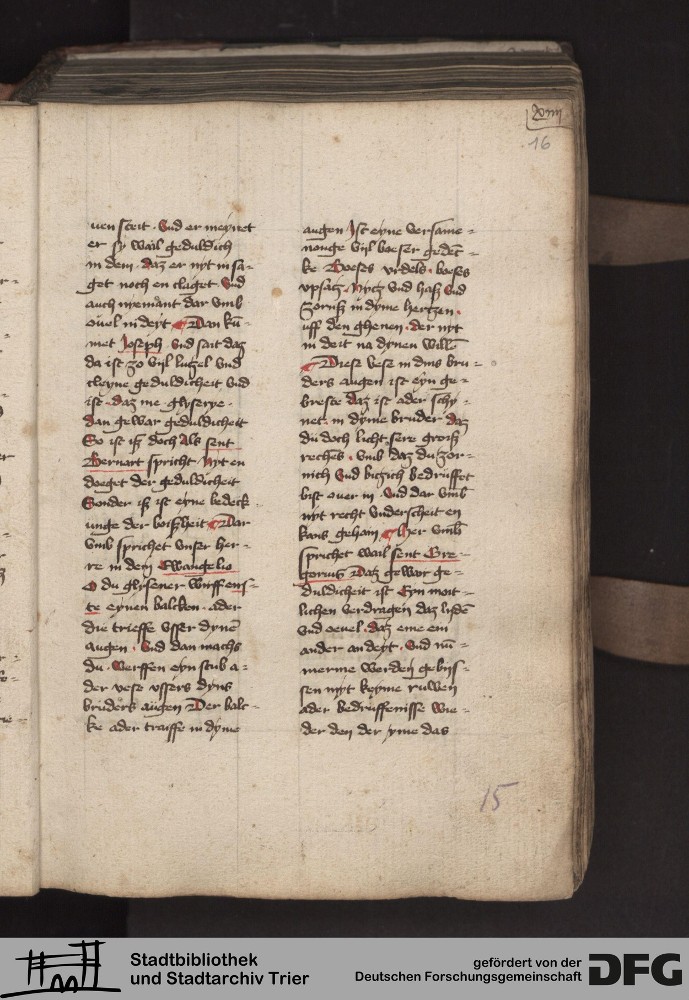 xviij
16
uen steit · Vnd er meynet
er sy wail geduldich
in dem · daz er nyt in sa-
get noch en claget · Vnd
auch nyemant dar vmb
ouel in deyt Dan kū-
met Joseph · vnd sait daz
da ist zo vijl lutzel vnd
cleyne geduldicheit vnd
ist · daz me glyserye ·
dan gewar geduldicheit
So ist iß doch Als sent
Bernart spricht · Nyt en
doeget der geduldicheit
Sonder iß ist eyne bedeck
unge der boißheit Dar
vmb sprichet vnser her-
re in dem Ewangelio
O du glysener wirff ens-
te eynen balcken · ader
die trieffe vsser dynē
augen · Vnd dan machs
du · werffen eyn stub a-
der vese vssers dyns
bruders augen Der balc-
ke ader traiffe in dyme
augen Ist eyne versame-
nonge vijl boeser gedēc-
ke Boeses vrdels · boeses
vpsatz · Nytz vnd haß Vnd
zornß in dyme hertzen ·
uff den ghenen · der nyt
in deit na dynen willē
Diese vese in dins bru-
ders augen ist eyn ge-
breste daz ist ader schy-
net · in dyme bruder daz
du doch licht sere groiß
reches · vmb daz du zor-
nich Vnd bitzich bedruffet
bist ouer in · Vnd dar vmb
nyt recht vnderscheit en
kans gehain Her vmb
sprichet wail sent Gre-
gorius Daz gewar ge-
duldicheit ist Eyn moit-
lichen verdragen daz lydē
vnd oeuel · daz eme ein
ander an deyt · Vnd nū-
merme werden gebijs-
sen nyt keyme ruwen
ader bedruffenisse wie-
der den der yme das
15
Stadtbibliothek
und Stadtarchiv Trier
gefördert von der
Deutschen Forschungsgemeinschaft
DFG